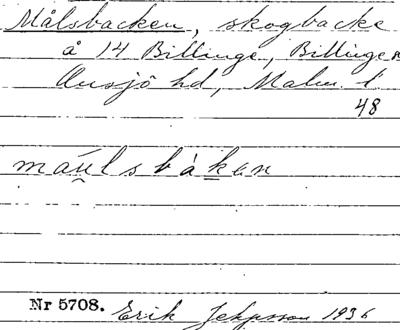 Målsbacken, skogbacke
å 14 Billinge, Billinge
Onsjö hd, Malm. l
48
mául s bàken
Nr 5708. Erik Jeppsson 1936